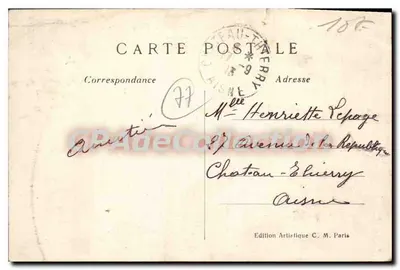 10F
CARTE POSTALE
CHATEAU-THIERRY
-9
AISNE
Correspondance
Adresse
77
Mlle Henriette Lepage
Amitié
87 avenue de la République
Chateau-Thierry
Aisne
Edition Artistique C. M. Paris